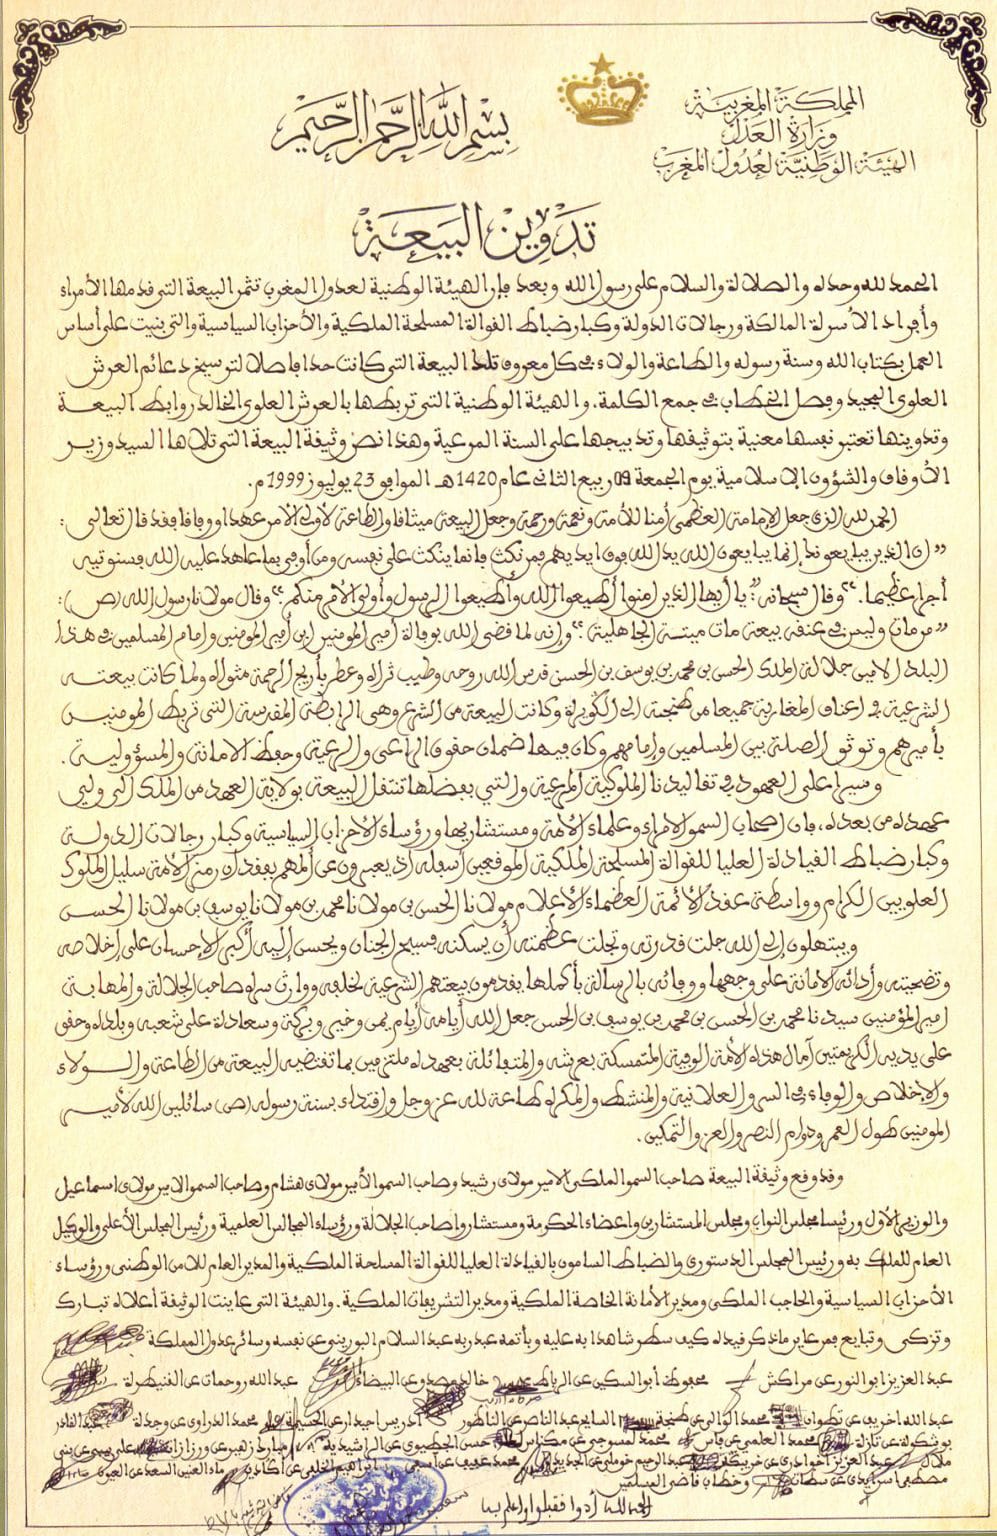 المملكة المغربية
وزارة العدل
الهيئة الوطنية لعدول المغرب
بسم الله الرحمن الرحيم
تدوين البيعة
الحمد لله وحده والصلاة والسلام على رسول الله وبعد فإن الهيئة الوطنية لعدول المغرب تثمن البيعة التي قدمها الأمراء
وأفراد الأسرة المالكة ورجالات الدولة وكبار ضباط القوات المسلحة الملكية والأحزاب السياسية والتي بنيت على أساس
العمل بكتاب الله وسنة رسوله والطاعة والولاء في كل معروف تلك البيعة التي كانت حدا فاصلا لترسيخ دعائم العرش
العلوي المجيد وفصل الخطاب في جمع الكلمة. والهيئة الوطنية التي تربطها بالعرش العلوي الخالد روابط البيعة
وتدوينها تعتبر نفسها معنية بتوثيقها وتدبيجها على السنة المرعية وهذا نص وثيقة البيعة التي تلاها السيد وزير
الأوقاف والشؤون الإسلامية يوم الجمعة 09 ربيع الثاني عام 1420 هـ الموافق 23 يوليوز 1999 م.
الحمد لله الذي جعل الإمامة العظمى أمنا للأمة ونعمة ورحمة وجعل البيعة ميثاقا والطاعة لأولي الأمر عهدا ووفاقا فقد قال تعالى :
"إن الذين يبايعونك إنما يبايعون الله يد الله فوق ايديهم فمن نكث فإنما ينكث على نفسه ومن أوفى بما عاهد عليه الله فسنوتيه
أجرا عظيما." وقال سبحانه: "يا أيها الذين امنوا أطيعوا الله وأطيعوا الرسول وأولي الأمر منكم." وقال مولانا رسول الله (ص) :
"من مات وليس في عنقه بيعة مات ميتة الجاهلية." وإنه لما قضى الله بوفاة أمير المومنين ابن أمير المومنين وإمام المسلمين في هذا
البلد الامين جلالة الملك الحسن بن محمد بن يوسف بن الحسن قدس الله روحه وطيب ثراه وعطر بأريج الرحمة مثواه ولما كانت بيعته
الشرعية في اعناق المغاربة جميعا من طنجة الى الكويرة وكانت البيعة من الشرع وهي الرابطة المقدسة التي تربط المومنين
بأميرهم وتوثق الصلة بين المسلمين وإمامهم وكان فيها ضمان حقوق الراعي والرعية وحفظ الامانة والمسؤولية .
وسيرا على المعهود في تقاليدنا الملوكية المرعية والتي بفضلها تنتقل البيعة بولاية العهد من الملك الى ولي
عهده من بعده، فإن اصحاب السمو الامراء وعلماء الأمة ومستشاريها ورؤساء الأحزاب السياسية وكبار رجالات الدولة
وكبار ضباط القيادة العليا للقوات المسلحة الملكية الموقعين أسفله اذ يعبرون عن ألمهم بفقدان رمز الأمة سليل الملوك
العلويين الكرام وواسطة عقد الأئمة العظماء الأعلام مولانا الحسن بن مولانا محمد بن مولانا يوسف بن مولانا الحسن
ويبتهلون إلى الله جلت قدرته وتجلت عظمته أن يسكنه فسيح الجنان ويحسن إليه أكبر الإحسان على إخلاصه
وتضحيته وأدائه الأمانة على وجهها ووفائه بالرسالة بأكملها يقدمون بيعتهم الشرعية لخلفه ووارث سره صاحب الجلالة والمهابة
امير المؤمنين سيدنا محمد بن الحسن بن محمد بن يوسف بن الحسن جعل الله أيامه أيام يمن وخير وبركة وسعادة على شعبه وبلاده وحقق
على يديه الكريمتين آمال هذه الأمة الوفية المتمسكة بعرشه والمتفائلة بعهده ملتزمين بما تقتضيه البيعة من الطاعة والولاء
والإخلاص والوفاء في السر والعلانية والمنشط والمكره طاعة لله عز وجل واقتداء بسنة رسوله (ص) سائلين الله لأمير
المومنين طول العمر ودوام النصر والعز والتمكين.
وقد وقع وثيقة البيعة صاحب السمو الملكي الامير مولاي رشيد وصاحب السمو الأمير مولاي هشام وصاحب السمو الامير مولاي اسماعيل
والوزير الأول ورئيسا مجلس النواب ومجلس المستشارين واعضاء الحكومة ومستشاروا صاحب الجلالة ورؤساء المجالس العلمية ورئيس المجلس الأعلى والوكيل
العام للملك به ورئيس المجلس الدستوري والضباط السامون بالقيادة العليا للقوات المسلحة الملكية والمدير العام للامن الوطني ورؤساء
الأحزاب السياسية والحاجب الملكي ومدير الأمانة الخاصة الملكية ومدير التشريفات الملكية. والهيئة التي عاينت الوثيقة أعلاه تبارك
وتزكي وتبايع فمن عاين ما ذكر قيده كيف سطر شاهدا به عليه وبأتمه عبد ربه عبد السلام البوريني عن نفسه وسائر عدول المملكة
عبد العزيز ابو النور عن مراكش محفوظ أبو السكين عن الرباط خالد مصدق عن البيضاء عبد الله روحمات عن القنيطرة
عبد الله اخريف عن تطوان محمد الوالي عن طنجة السايح عبد الناصر عن الناظور ادريس احيدار عن الحسيمة محمد الدراوي عن وجدة عبد القادر
بوشكولة عن تازة محمد العلمي عن فاس محمد لمسوجي عن مكناس حسن الحطيوي عن الراشيدية مبارك زهير عن ورزازات علي عن بني
ملال عبد العزيز اخوادري عن خريبكة عبد الرحيم عن الجديدة محمد عفيف عن آسفي ابراهيم الخلفي عن اكادير ماء العينين السعد عن العيون
مصطفى عن سطات وخطاب قاضي المسلمين
الحمد لله أديا فقبلا واعلم بها